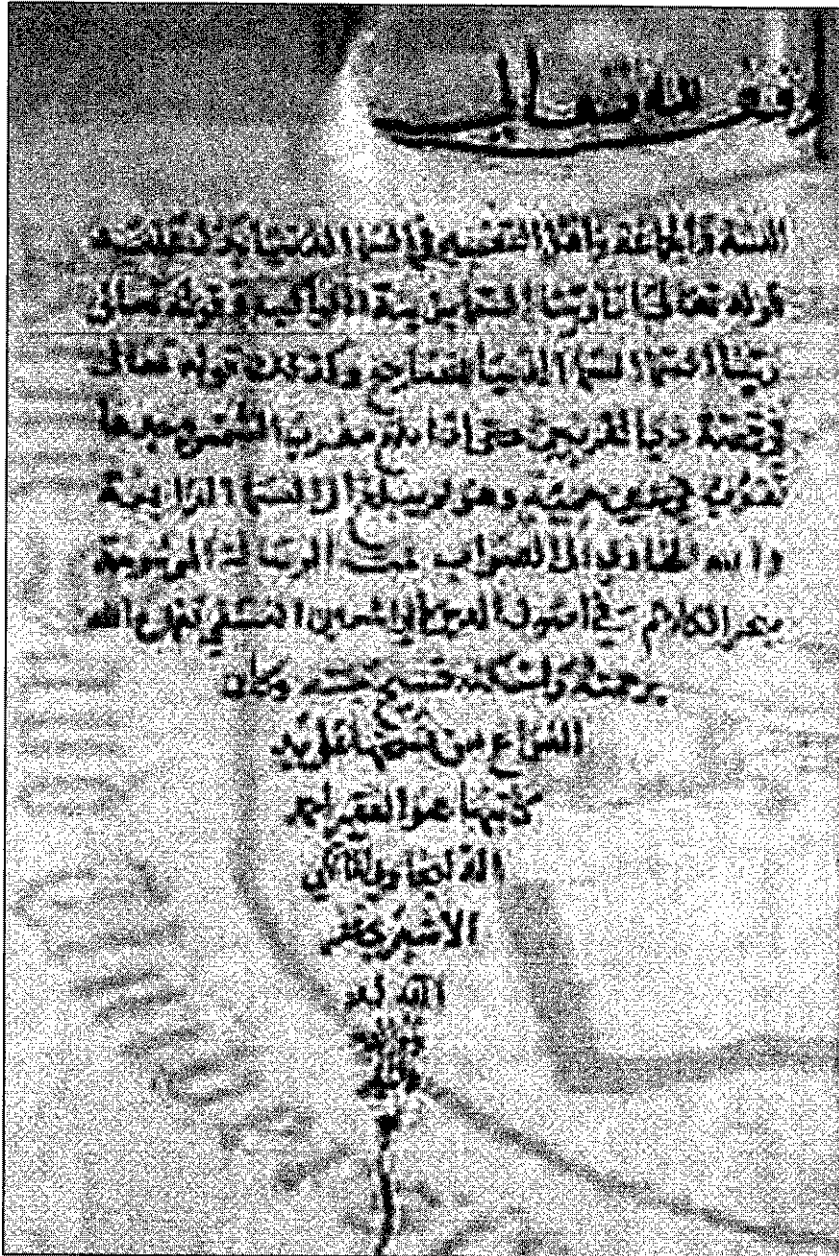 وقف لله تعالى
السنة والجماعة وأهل التفسير في السما الدنيا بدليل
قوله تعالى انا زينا السما بزينة الكواكب وقوله تعالى
زينا السما الدنيا بمصابيح وكذلك قوله تعالى
في قصة ذي القرنين حتى اذا بلغ مغرب الشمس وجدها
تغرب في عين حمئة وهو لم يبلغ الى السما الرابعة
والله الهادي الى الصواب تمت الرسالة الموسومة
ببحر الكلام في اصول الدين لأبي المعين النسفي تغمده الله
برحمته واسكنه جنته وكان
الفراغ من نسخها على يد
كاتبها الفقير احمد
المالكي
غفر
الله له